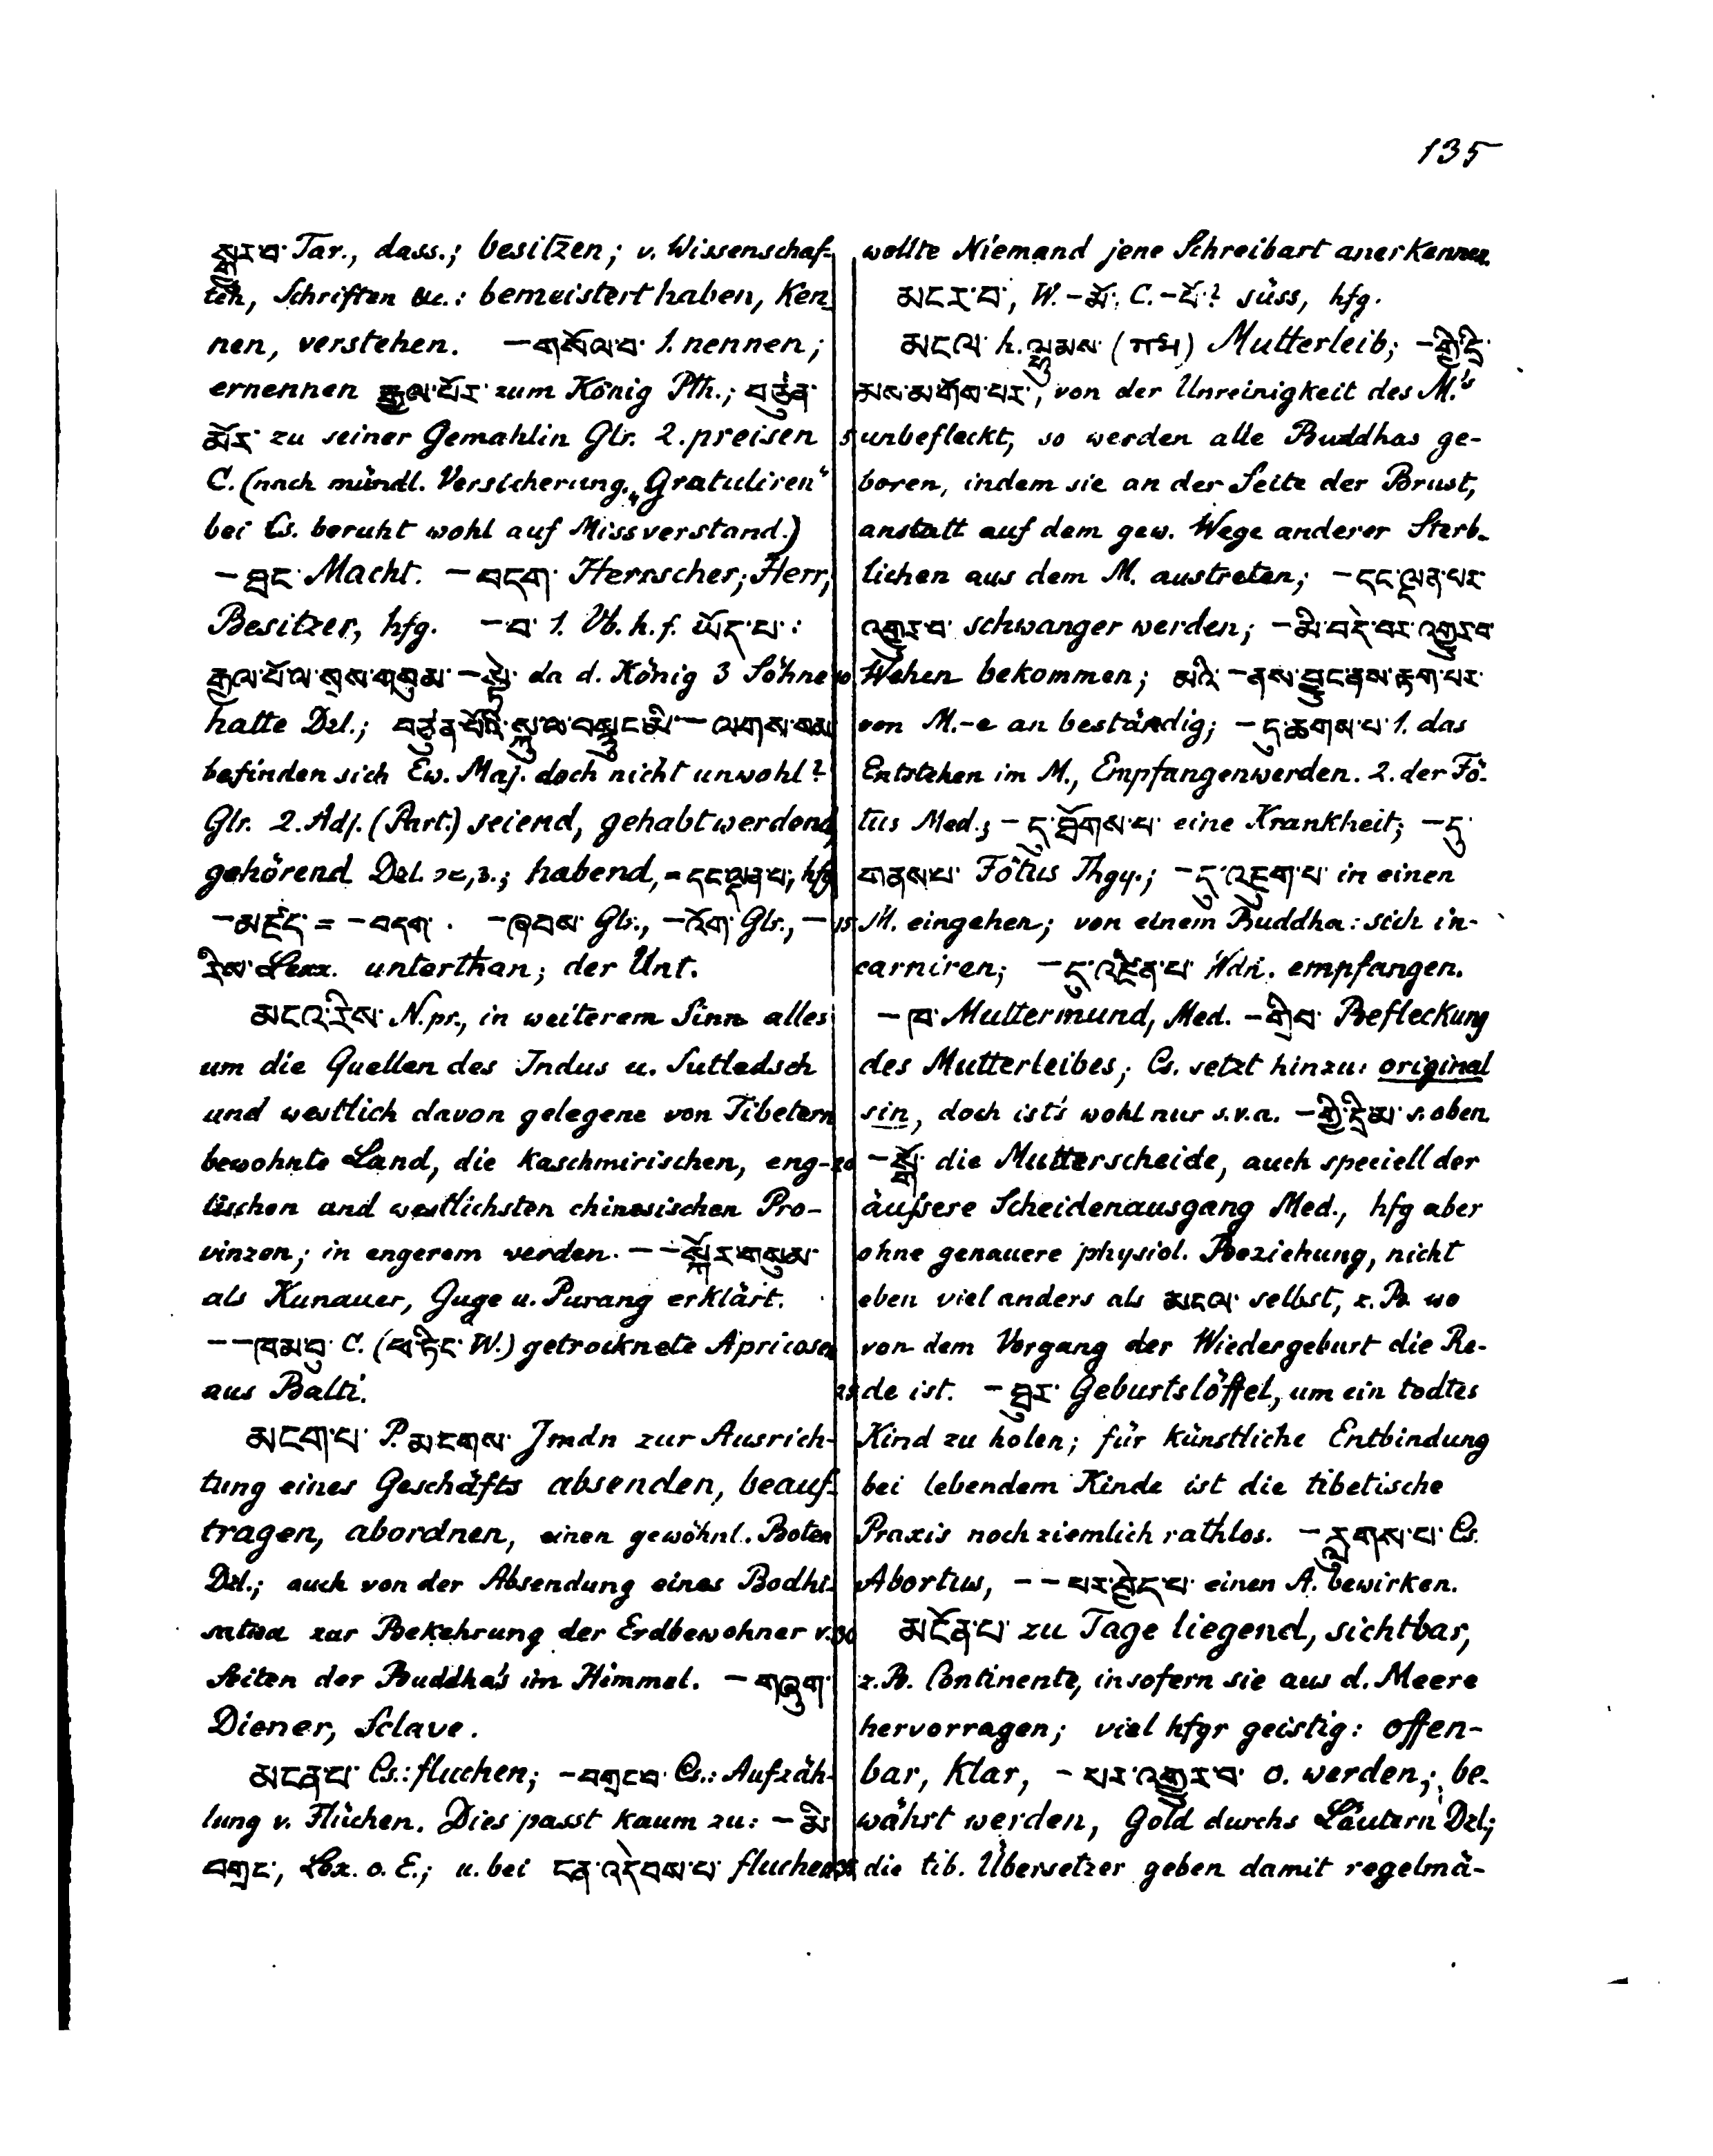 135
སྒྱུར་བ་ Tar., dass.; besitzen; v. Wissenschaf-
ten, Schriften &c.: bemeistert haben, ken-
nen, verstehen. — གསོལ་བ་ 1. nennen;
ernennen རྒྱལ་པོར་ zum König Pth.; བཙུན་
མོར་ zu seiner Gemahlin Glr. 2. preisen
C. (nach mündl. Versicherung. „Gratuliren“
bei Cs. beruht wohl auf Missverstand.)
— ཐང་ Macht. — བདག་ Herrscher; Herr,
Besitzer, hfg. — བ་ 1. Vb. h. f. ཡོད་པ་:
རྒྱལ་པོ་ལ་སྲས་གསུམ་ — སྟེ་ da d. König 3 Söhne
hatte Dzl.; བཙུན་པོའི་སྐུ་ལ་བསྙུང་མི་ — ལགས་སམ
befinden sich Ew. Maj. doch nicht unwohl?
Glr. 2. Adj. (Part.) seiend, gehabt werdend,
gehörend Dzl. habend, = དང་ལྡན་པ་; hfg
— མཛད་ = — བདག་. — ཞབས་ Glr., — འོག་ Glr., —
རིས་ Lexx. unterthan; der Unt.
མངའ་རིས་ N. pr., in weiterem Sinn alles
um die Quellen des Indus u. Sutledsch
und westlich davon gelegene von Tibetern
bewohnte Land, die kaschmirischen, eng-
lischen und westlichsten chinesischen Pro-
vinzen; in engerem werden. — — སྐོར་གསུམ་
als Kunauer, Guge u. Purang erklärt.
— — ཁམ་བུ་ C. (ཕ་ཏིང་ W.) getrocknete Apricosen
aus Balti.
མངག་པ་ P. མངགས་ Jmdn zur Ausrich-
tung eines Geschäfts absenden, beauf-
tragen, abordnen, einen gewöhnl. Boten
Dzl.; auch von der Absendung eines Bodhi-
satwa zur Bekehrung der Erdbewohner v.
Seiten der Buddha's im Himmel. — གཞུག་
Diener, Sclave.
མངན་པ་ Cs.: fluchen; — བགྲང་བ་ Cs.: Aufzäh-
lung v. Flüchen. Dies passt kaum zu: — མི་
བགྲང་, Lex. o. E.; u. bei ངན་འདེབས་པ་ fluchen
wollte Niemand jene Schreibart anerkennen.
མངར་བ་, W. — མོ་, C. — པོ་? süss, hfg.
མངལ་ h. ལྷུམས་ Mutterleib; — གྱི་དྲི་
མས་མ་གོས་པར་, von der Unreinigkeit des M.'s
5 unbefleckt, so werden alle Buddhas ge-
boren, indem sie an der Seite der Brust,
anstatt auf dem gew. Wege anderer Sterb-
lichen aus dem M. austreten; — དང་ལྡན་པར་
འགྱུར་བ་ schwanger werden; — མི་བདེ་བར་འགྱུར་བ་
10 Wehen bekommen; མའི་ — ནས་བྱུང་ནས་རྟག་པར་
von M.-e an beständig; — དུ་ཆགས་པ་ 1. das
Entstehen im M., Empfangenwerden. 2. der Fö-
tus Med.; — དུ་ཐོགས་པ་ eine Krankheit; — དུ་
གནས་པ་ Fötus Thgy.; — དུ་འཇུག་པ་ in einen
15 M. eingehen; von einem Buddha: sich in-
carniren; — དུ་འཛིན་པ་ Wdn. empfangen.
— ཁ་ Muttermund, Med. — གྲིབ་ Befleckung
des Mutterleibes; Cs. setzt hinzu: original
sin, doch ist's wohl nur s.v.a. — གྱི་དྲི་མ་ s. oben
20 — སྒོ་ die Mutterscheide, auch speciell der
äußere Scheidenausgang Med., hfg aber
ohne genauere physiol. Beziehung, nicht
eben viel anders als མངལ་ selbst, z. B. wo
von dem Vorgang der Wiedergeburt die Re-
25 de ist. — ཐུར་ Geburtslöffel, um ein todtes
Kind zu holen; für künstliche Entbindung
bei lebendem Kinde ist die tibetische
Praxis noch ziemlich rathlos. — རླུགས་པ་ Cs.
Abortus, — — པར་བྱེད་པ་ einen A. bewirken.
30 མངོན་པ་ zu Tage liegend, sichtbar,
z. B. Continente, insofern sie aus d. Meere
hervorragen; viel hfgr geistig: offen-
bar, klar, — པར་འགྱུར་བ་ o. werden; be-
währt werden, Gold durchs Läutern Dzl;
35 die tib. Übersetzer geben damit regelmä-